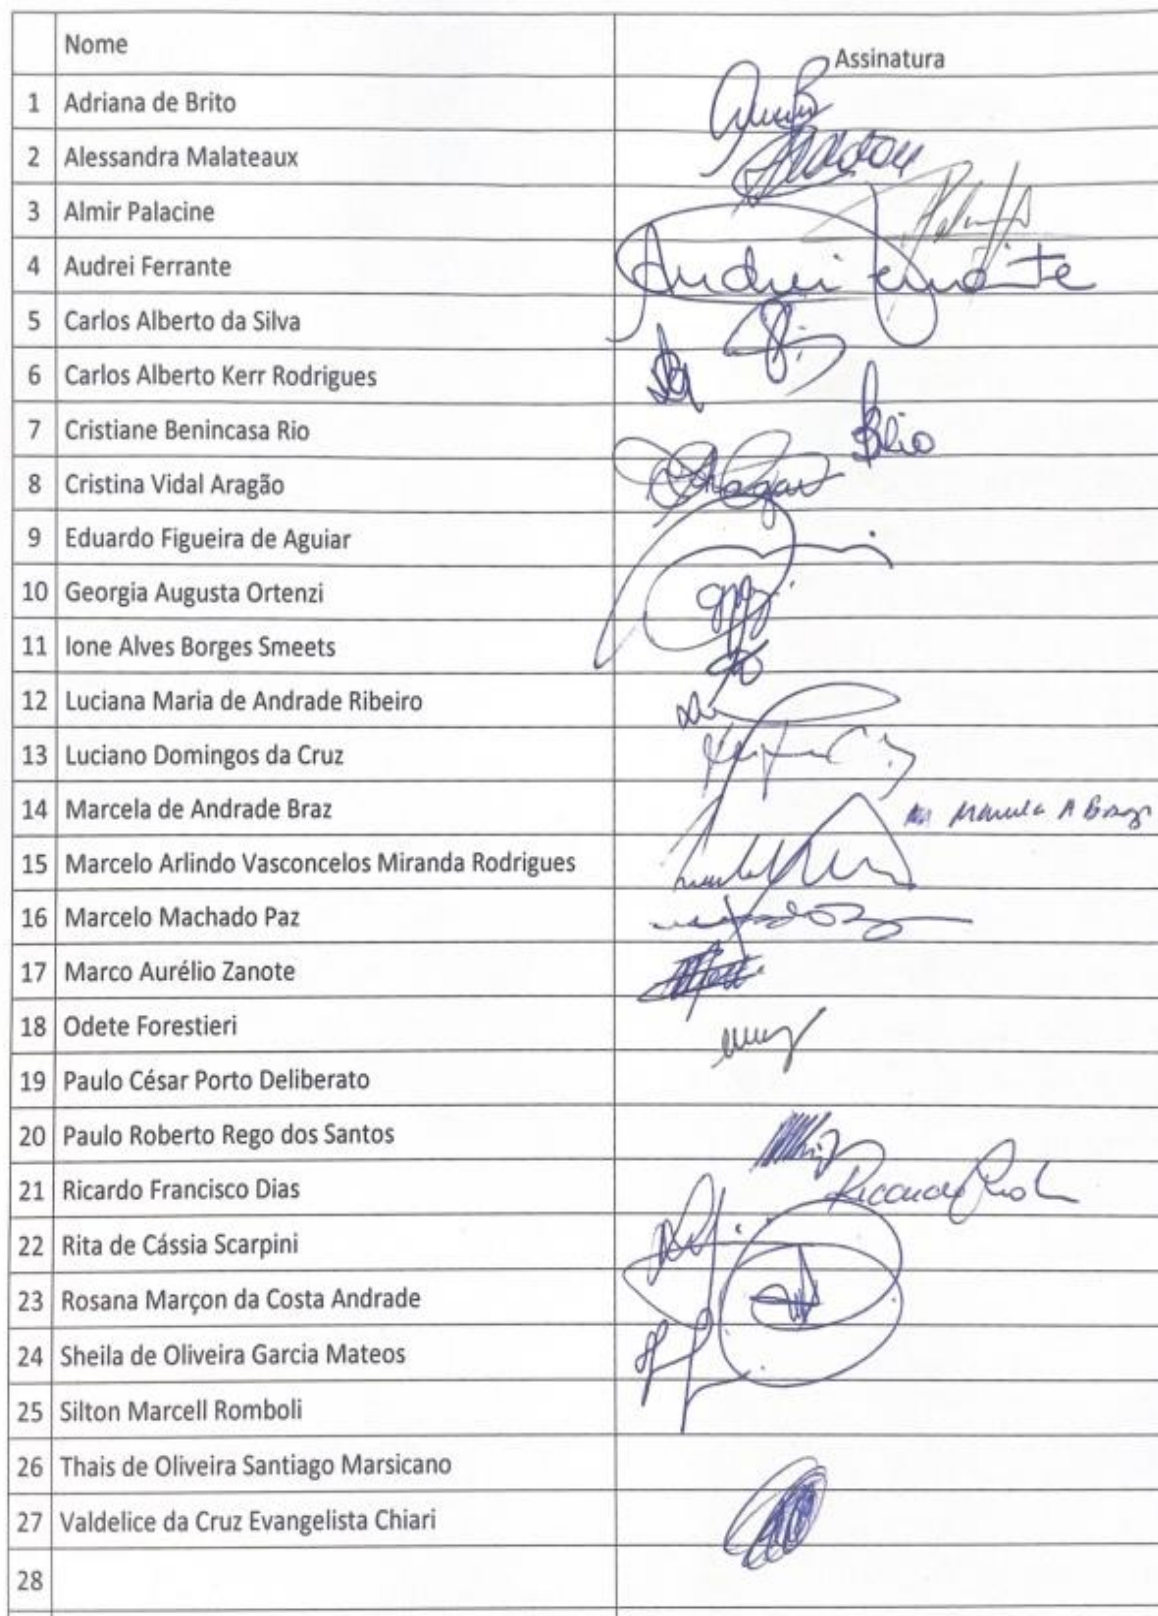 Nome Assinatura
1 Adriana de Brito
2 Alessandra Malateaux
3 Almir Palacine
4 Audrei Ferrante Audrei Ferrante
5 Carlos Alberto da Silva
6 Carlos Alberto Kerr Rodrigues
7 Cristiane Benincasa Rio BRio
8 Cristina Vidal Aragão
9 Eduardo Figueira de Aguiar
10 Georgia Augusta Ortenzi
11 Ione Alves Borges Smeets
12 Luciana Maria de Andrade Ribeiro
13 Luciano Domingos da Cruz
14 Marcela de Andrade Braz
15 Marcelo Arlindo Vasconcelos Miranda Rodrigues
16 Marcelo Machado Paz
17 Marco Aurélio Zanote
18 Odete Forestieri
19 Paulo César Porto Deliberato
20 Paulo Roberto Rego dos Santos
21 Ricardo Francisco Dias Ricardo
22 Rita de Cássia Scarpini
23 Rosana Marçon da Costa Andrade
24 Sheila de Oliveira Garcia Mateos
25 Silton Marcell Romboli
26 Thais de Oliveira Santiago Marsicano
27 Valdelice da Cruz Evangelista Chiari
28